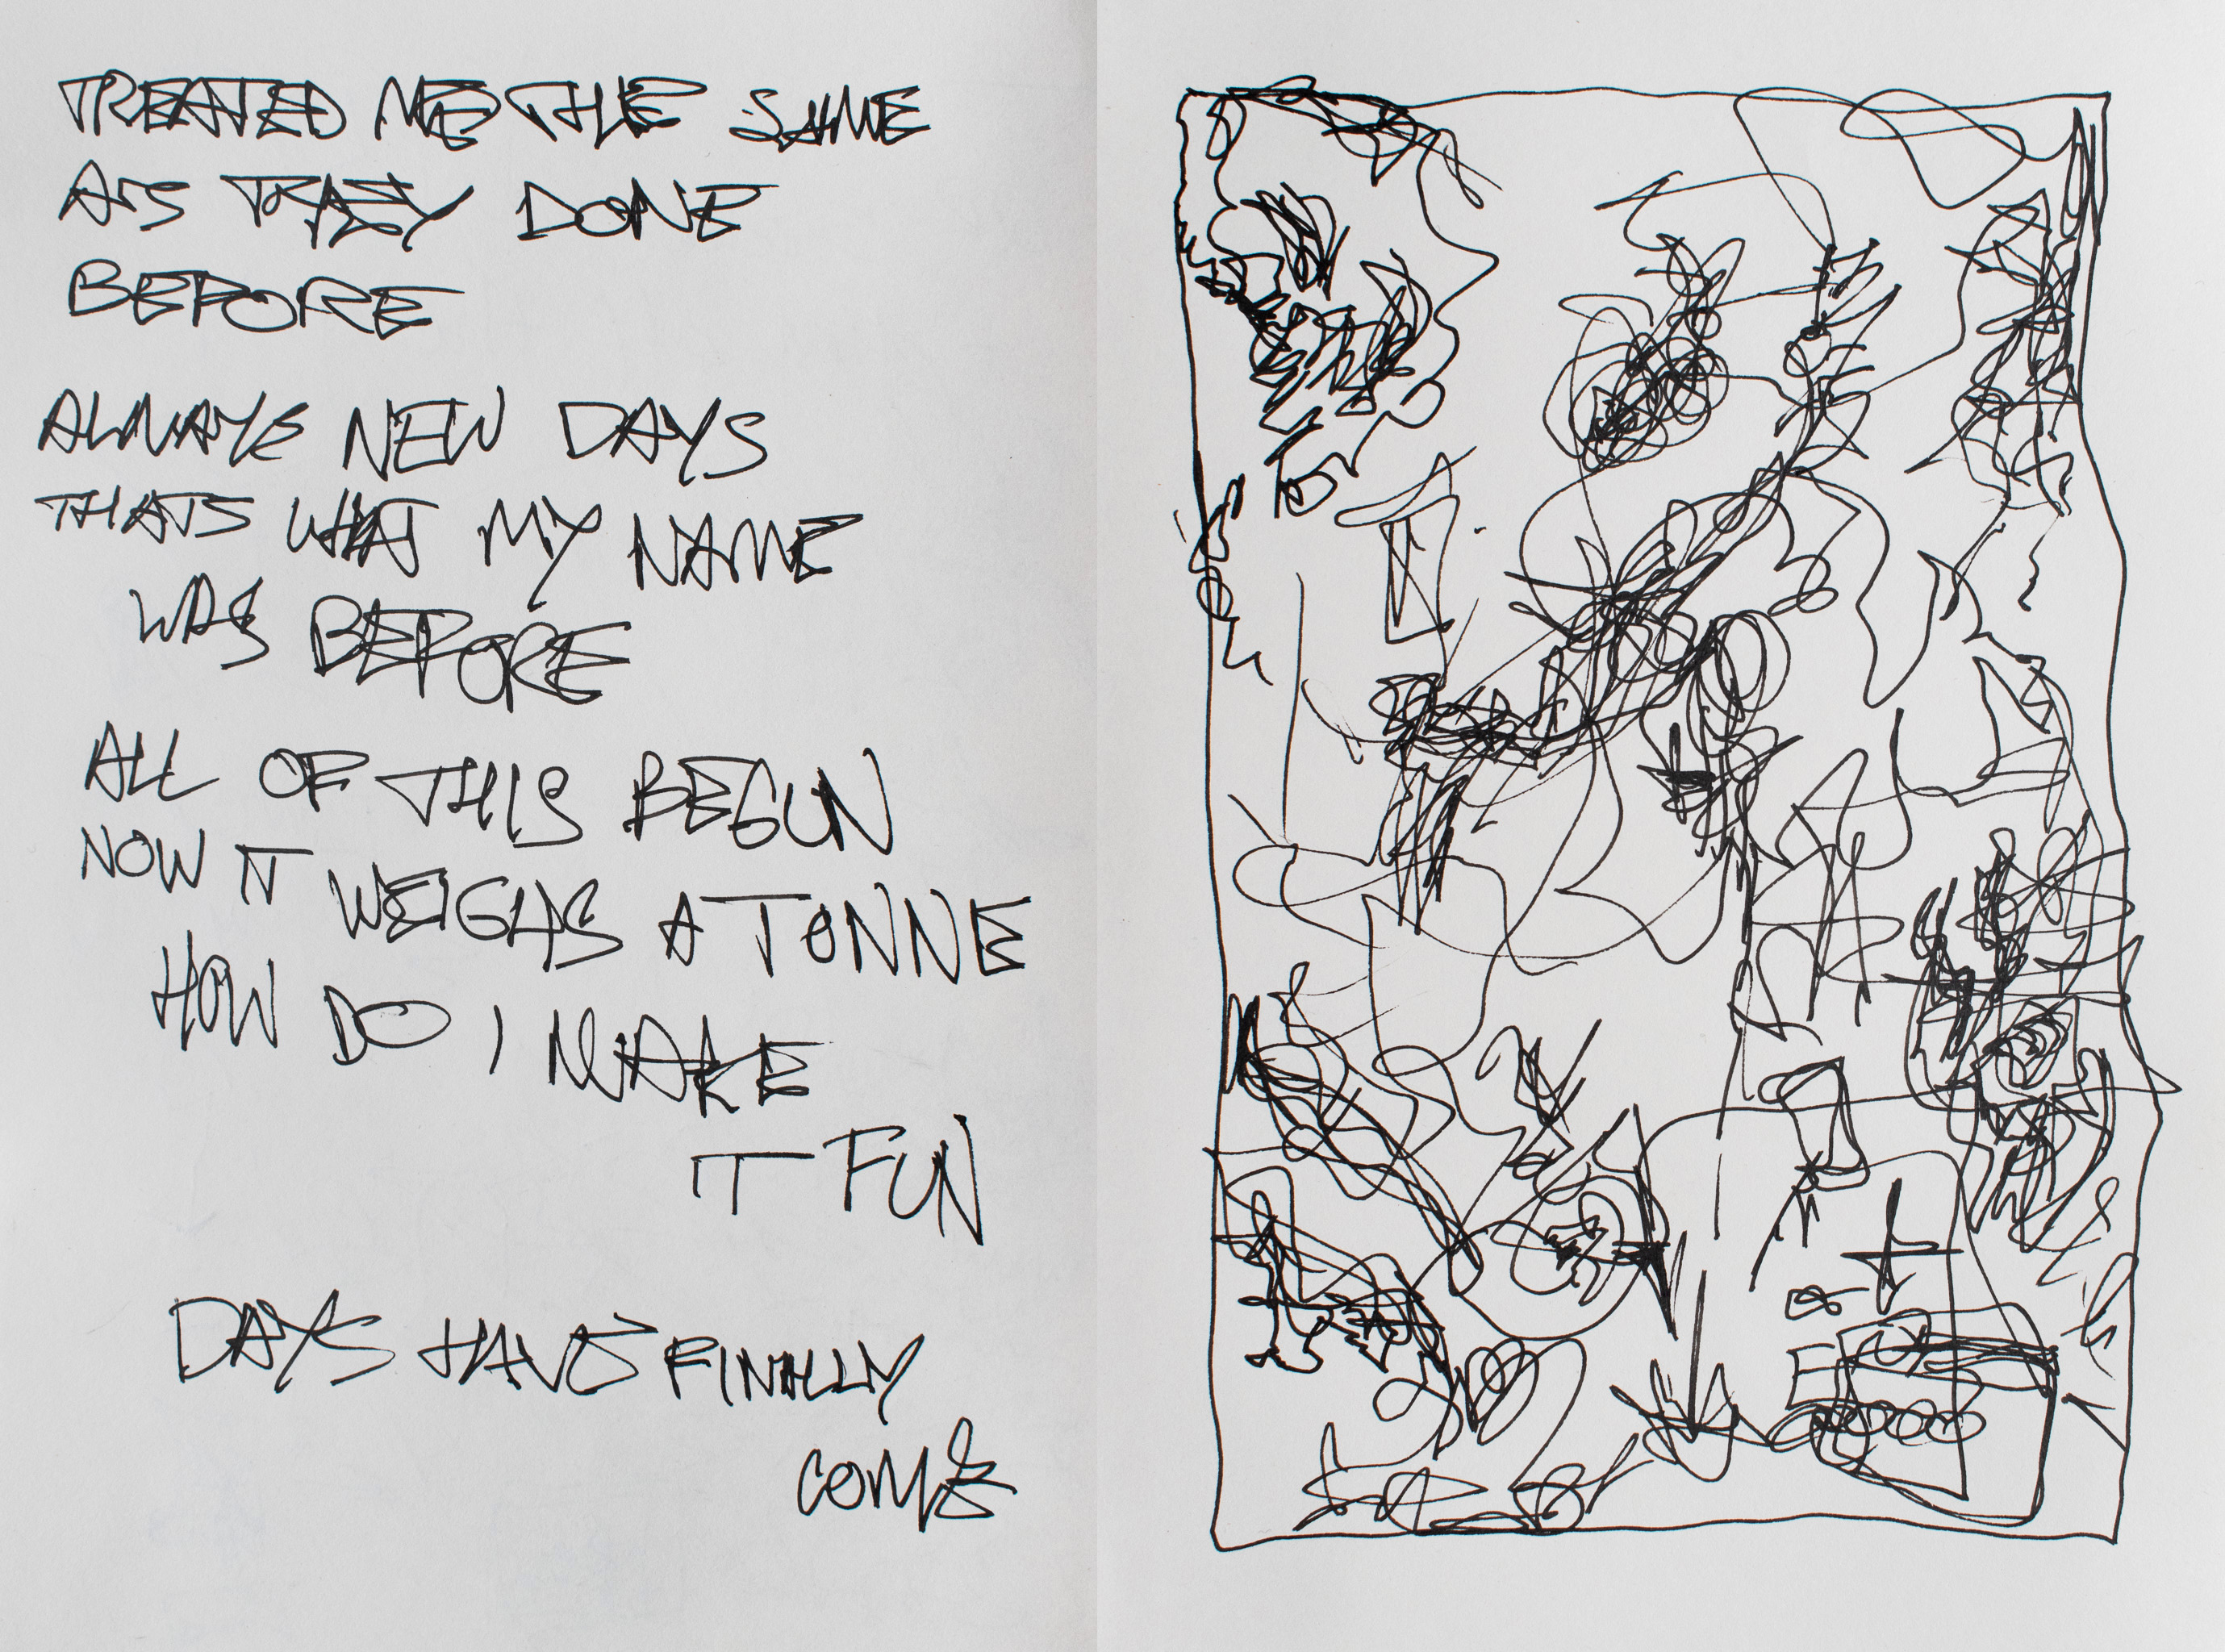 TREATED ME THE SAME
AS THEY DONE
BEFORE
ALWAYS NEW DAYS
THATS WHAT MY NAME
WAS BEFORE
ALL OF THIS BEGUN
NOW IT WEIGHS A TONNE
HOW DO I MAKE
IT FUN
DAYS HAVE FINALLY
COME